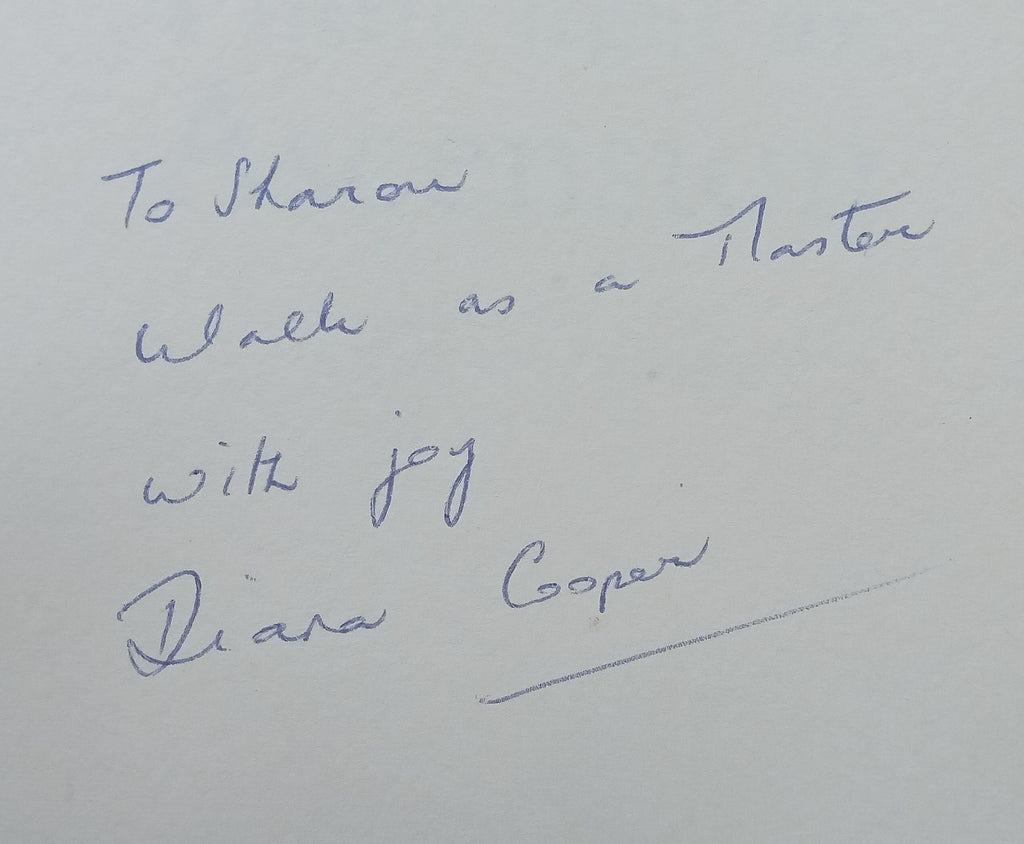 To Sharon
Walk as a Master
with joy
Diana Cooper